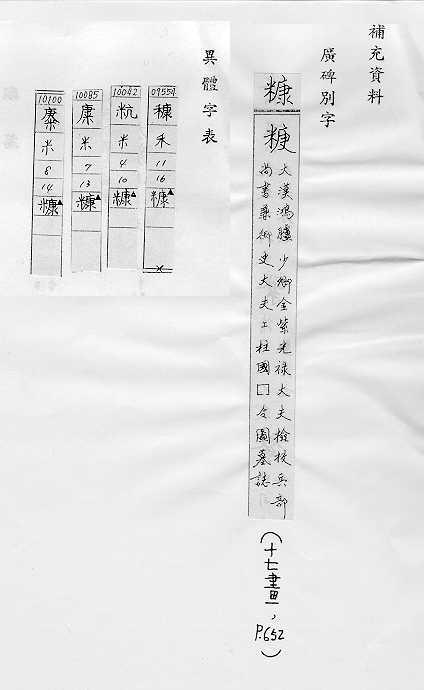 補充資料
廣碑別字
糠
糠
大漢鴻臚少卿金紫光祿大夫檢校兵部
尚書兼御史大夫上柱國□令圖墓誌
(十七畫,
P.652)
異體字表
09554
穅
禾
11
16
糠▲
10042
粇
米
4
10
糠▲
10085
米
7
13
糠▲
10100
米
8
14
糠▲